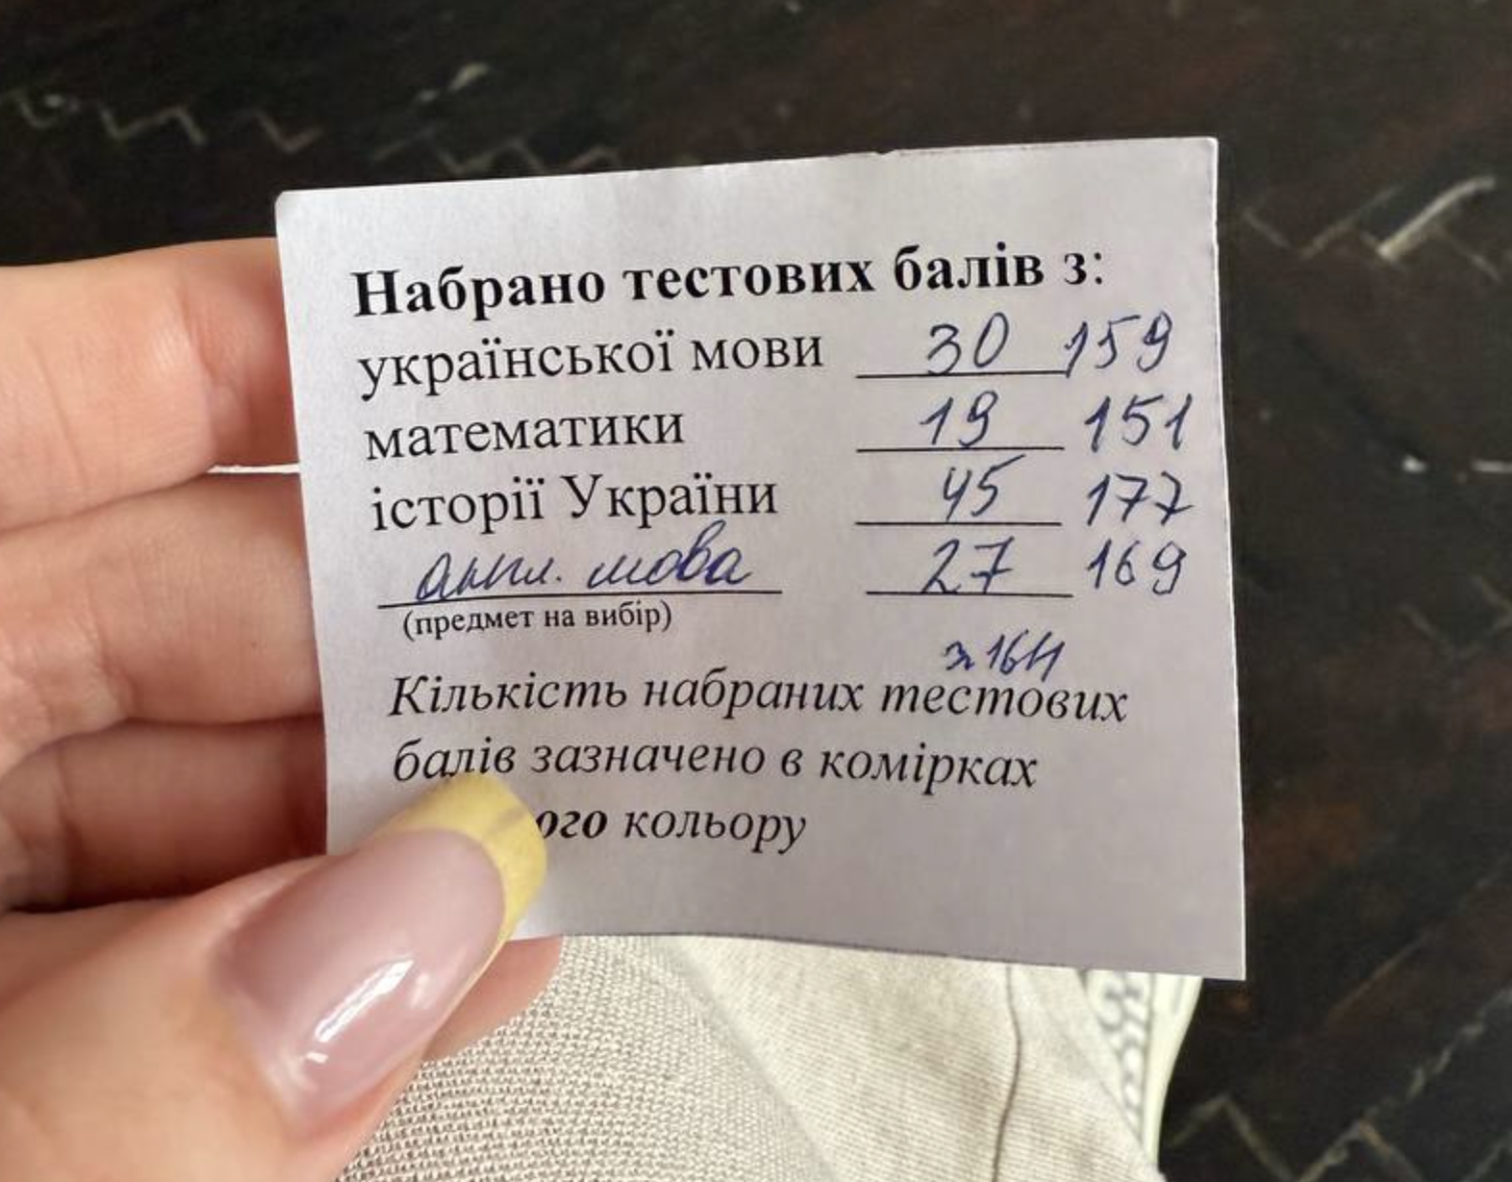 Набрано тестових балів з:
української мови 30 159
математики 19 151
історії України 45 177
англ. мова 27 169
(предмет на вибір)
≈ 164
Кількість набраних тестових
балів зазначено в комірках
ого кольору